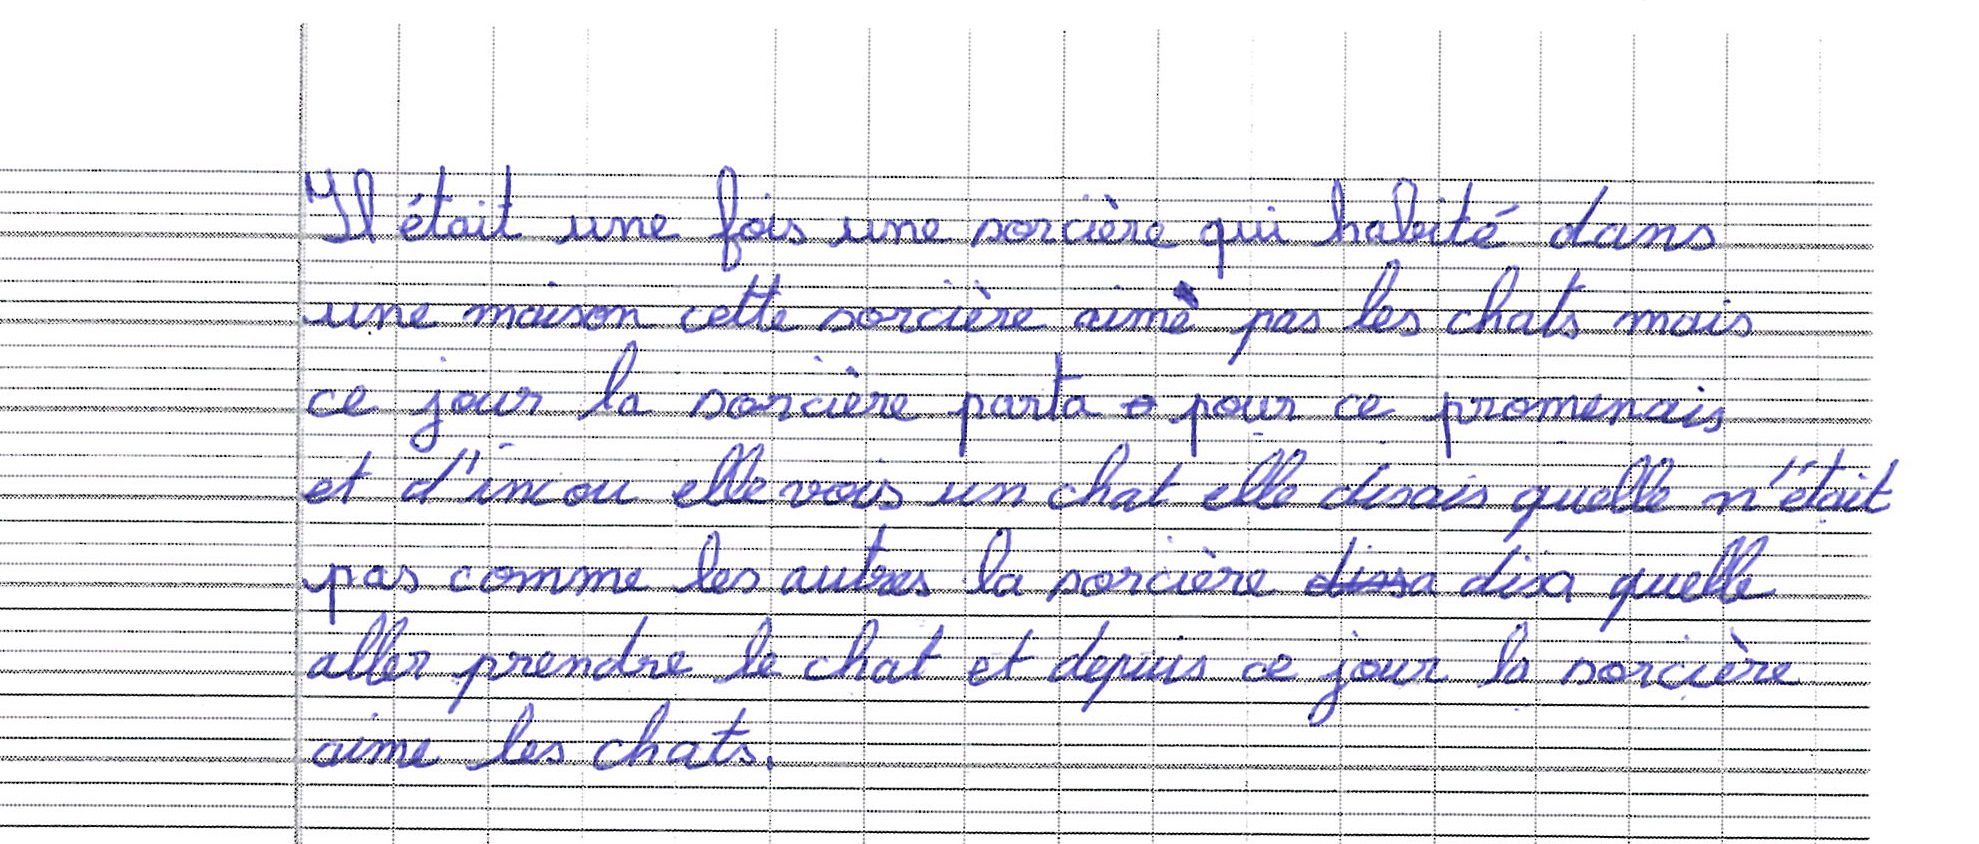 Il était une fois une sorcière qui habité dans
une maison cette sorcière aimé pas les chats mais
ce jour la sorcière parta pour ce promenais
et d'incou elle vois un chat elle disais quelle n'était
pas comme les autres la sorcière dissa disa quelle
aller prendre le chat et depuis ce jour la sorcière
aime les chats.